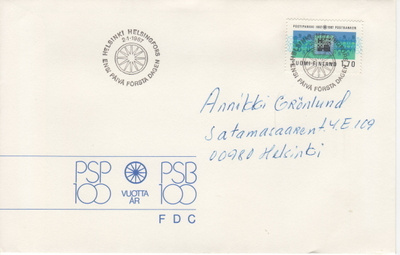 HELSINKI HELSINGFORS
2.1.1987
ENSI PÄIVÄ FÖRSTA DAGEN
POSTIPANKKI 1887 1987 POSTBANKEN
SUOMI-FINLAND
1,70
ENSI PÄIVÄ FÖRSTA DAGEN
Annikki Grönlund
Satamasaarent. 4. E 109
00980 Helsinki
PSP PSB
100 VUOTTA ÅR 100
FDC